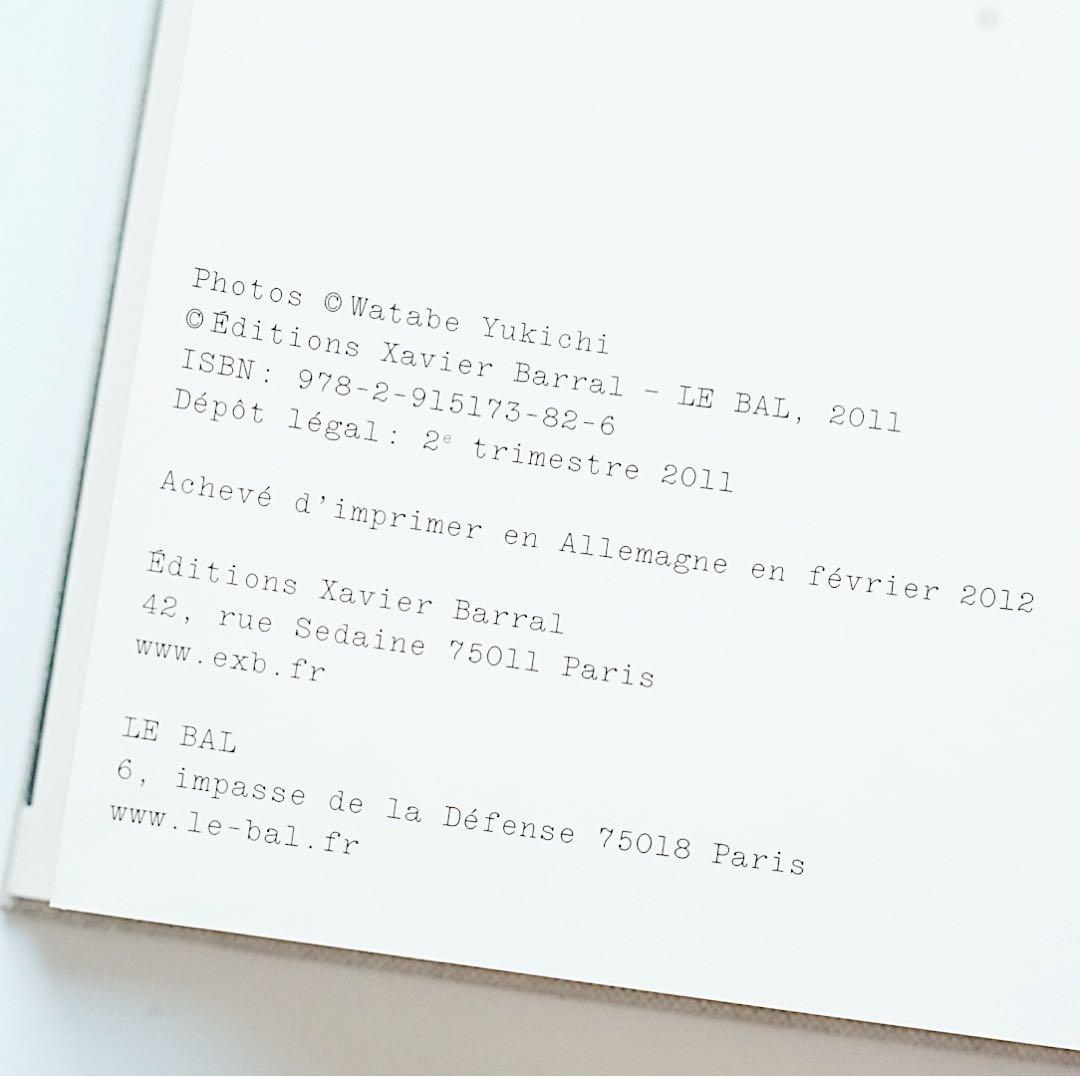 Photos ©Watabe Yukichi
©Éditions Xavier Barral – LE BAL, 2011
ISBN: 978-2-915173-82-6
Dépôt légal: 2e trimestre 2011
Achevé d’imprimer en Allemagne en février 2012
Éditions Xavier Barral
42, rue Sedaine 75011 Paris
www.exb.fr
LE BAL
6, impasse de la Défense 75018 Paris
www.le-bal.fr